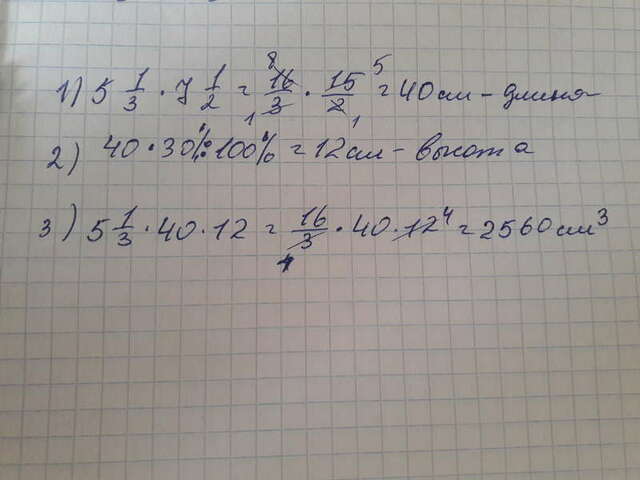 1) 5 1/3 · 7 1/2 = 16/3 · 15/2 = 40 см - длина
2) 40 · 30% : 100% = 12 см - высота
3) 5 1/3 · 40 · 12 = 16/3 · 40 · 12 = 2560 см³